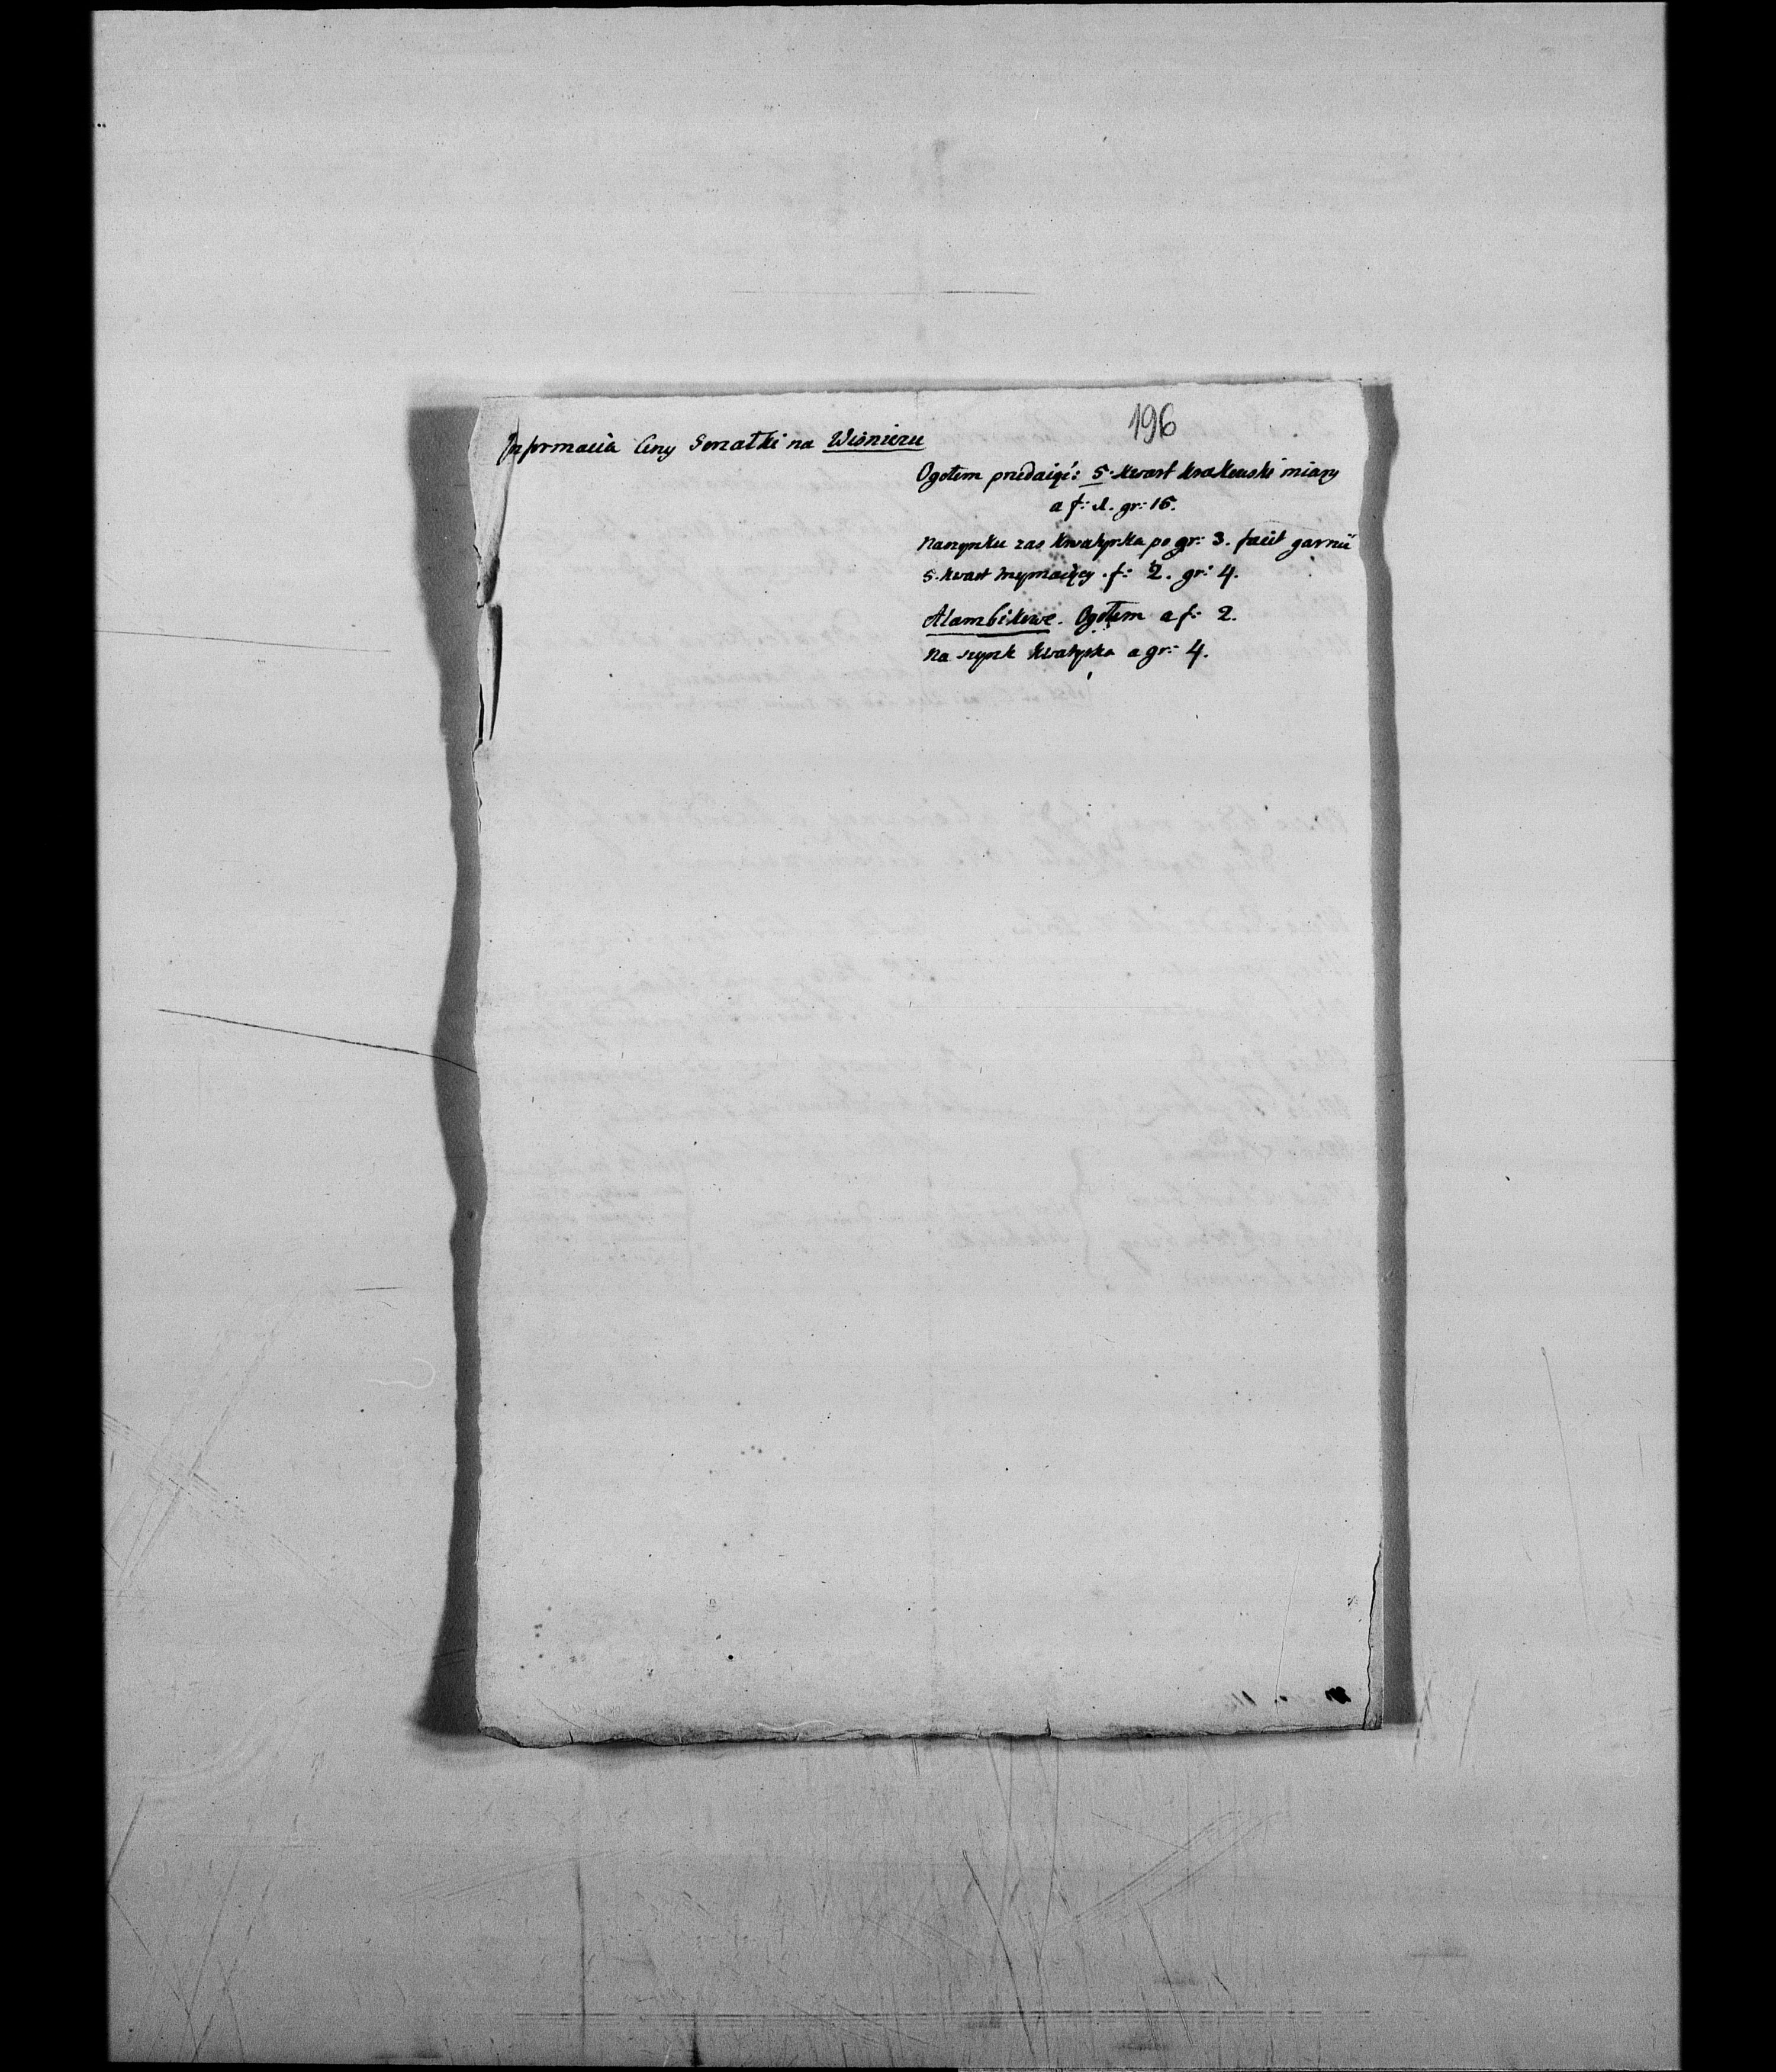 196
Informacia Ceny Gorzałki na Wisniczu
Ogołem przedaiąć: 5. kwart krakowski miary
a f: 1. gr: 16.
Naszynku zas kwatyrka po gr: 3. facit garniec
5. kwart trzymaiący. f: 2. gr: 4.
Alambikowe. Ogołem a f: 2.
Na szynk kwatyrka a gr: 4.